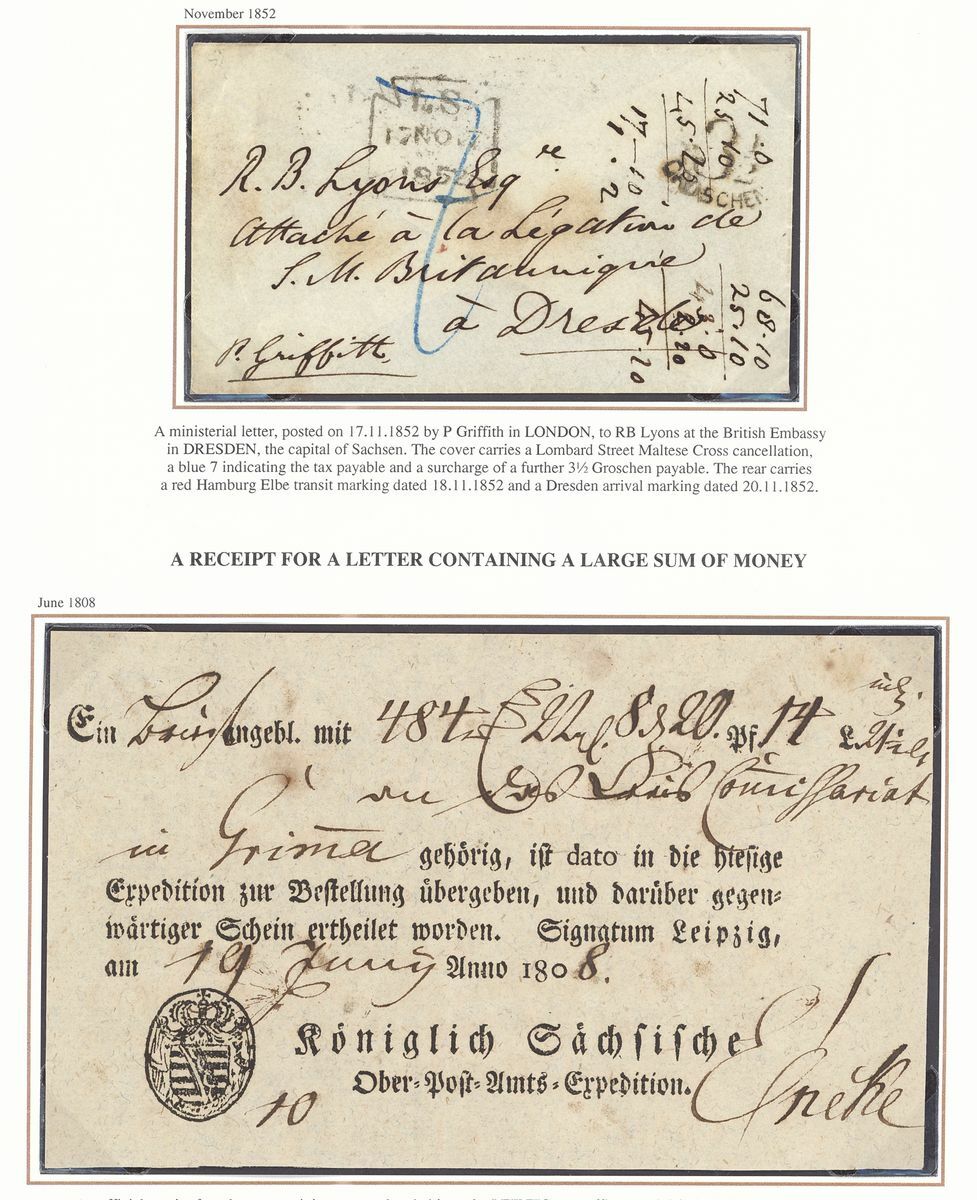 November 1852
L.S
17NO
1852
R. B. Lyons Esqre
Attaché à la Légation de
S. M. Britannique
à Dresde
P. Griffith
7
71.0
25.10
45.20
17.10
GROSCHEN
68.10
25.10
43.0
2.20
45.20
A ministerial letter, posted on 17.11.1852 by P Griffith in LONDON, to RB Lyons at the British Embassy
in DRESDEN, the capital of Sachsen. The cover carries a Lombard Street Maltese Cross cancellation,
a blue 7 indicating the tax payable and a surcharge of a further 3½ Groschen payable. The rear carries
a red Hamburg Elbe transit marking dated 18.11.1852 and a Dresden arrival marking dated 20.11.1852.
A RECEIPT FOR A LETTER CONTAINING A LARGE SUM OF MONEY
June 1808
Ein Brief angebl. mit 484 22 8 20. Pf. 14 L.
an das Creis Commissariat
in Grimma gehörig, ist dato in die hiesige
Expedition zur Bestellung übergeben, und darüber gegen-
wärtiger Schein ertheilet worden. Signatum Leipzig,
am 19 Juny Anno 1808.
Königlich Sächsische
Ober-Post-Amts-Expedition.
10